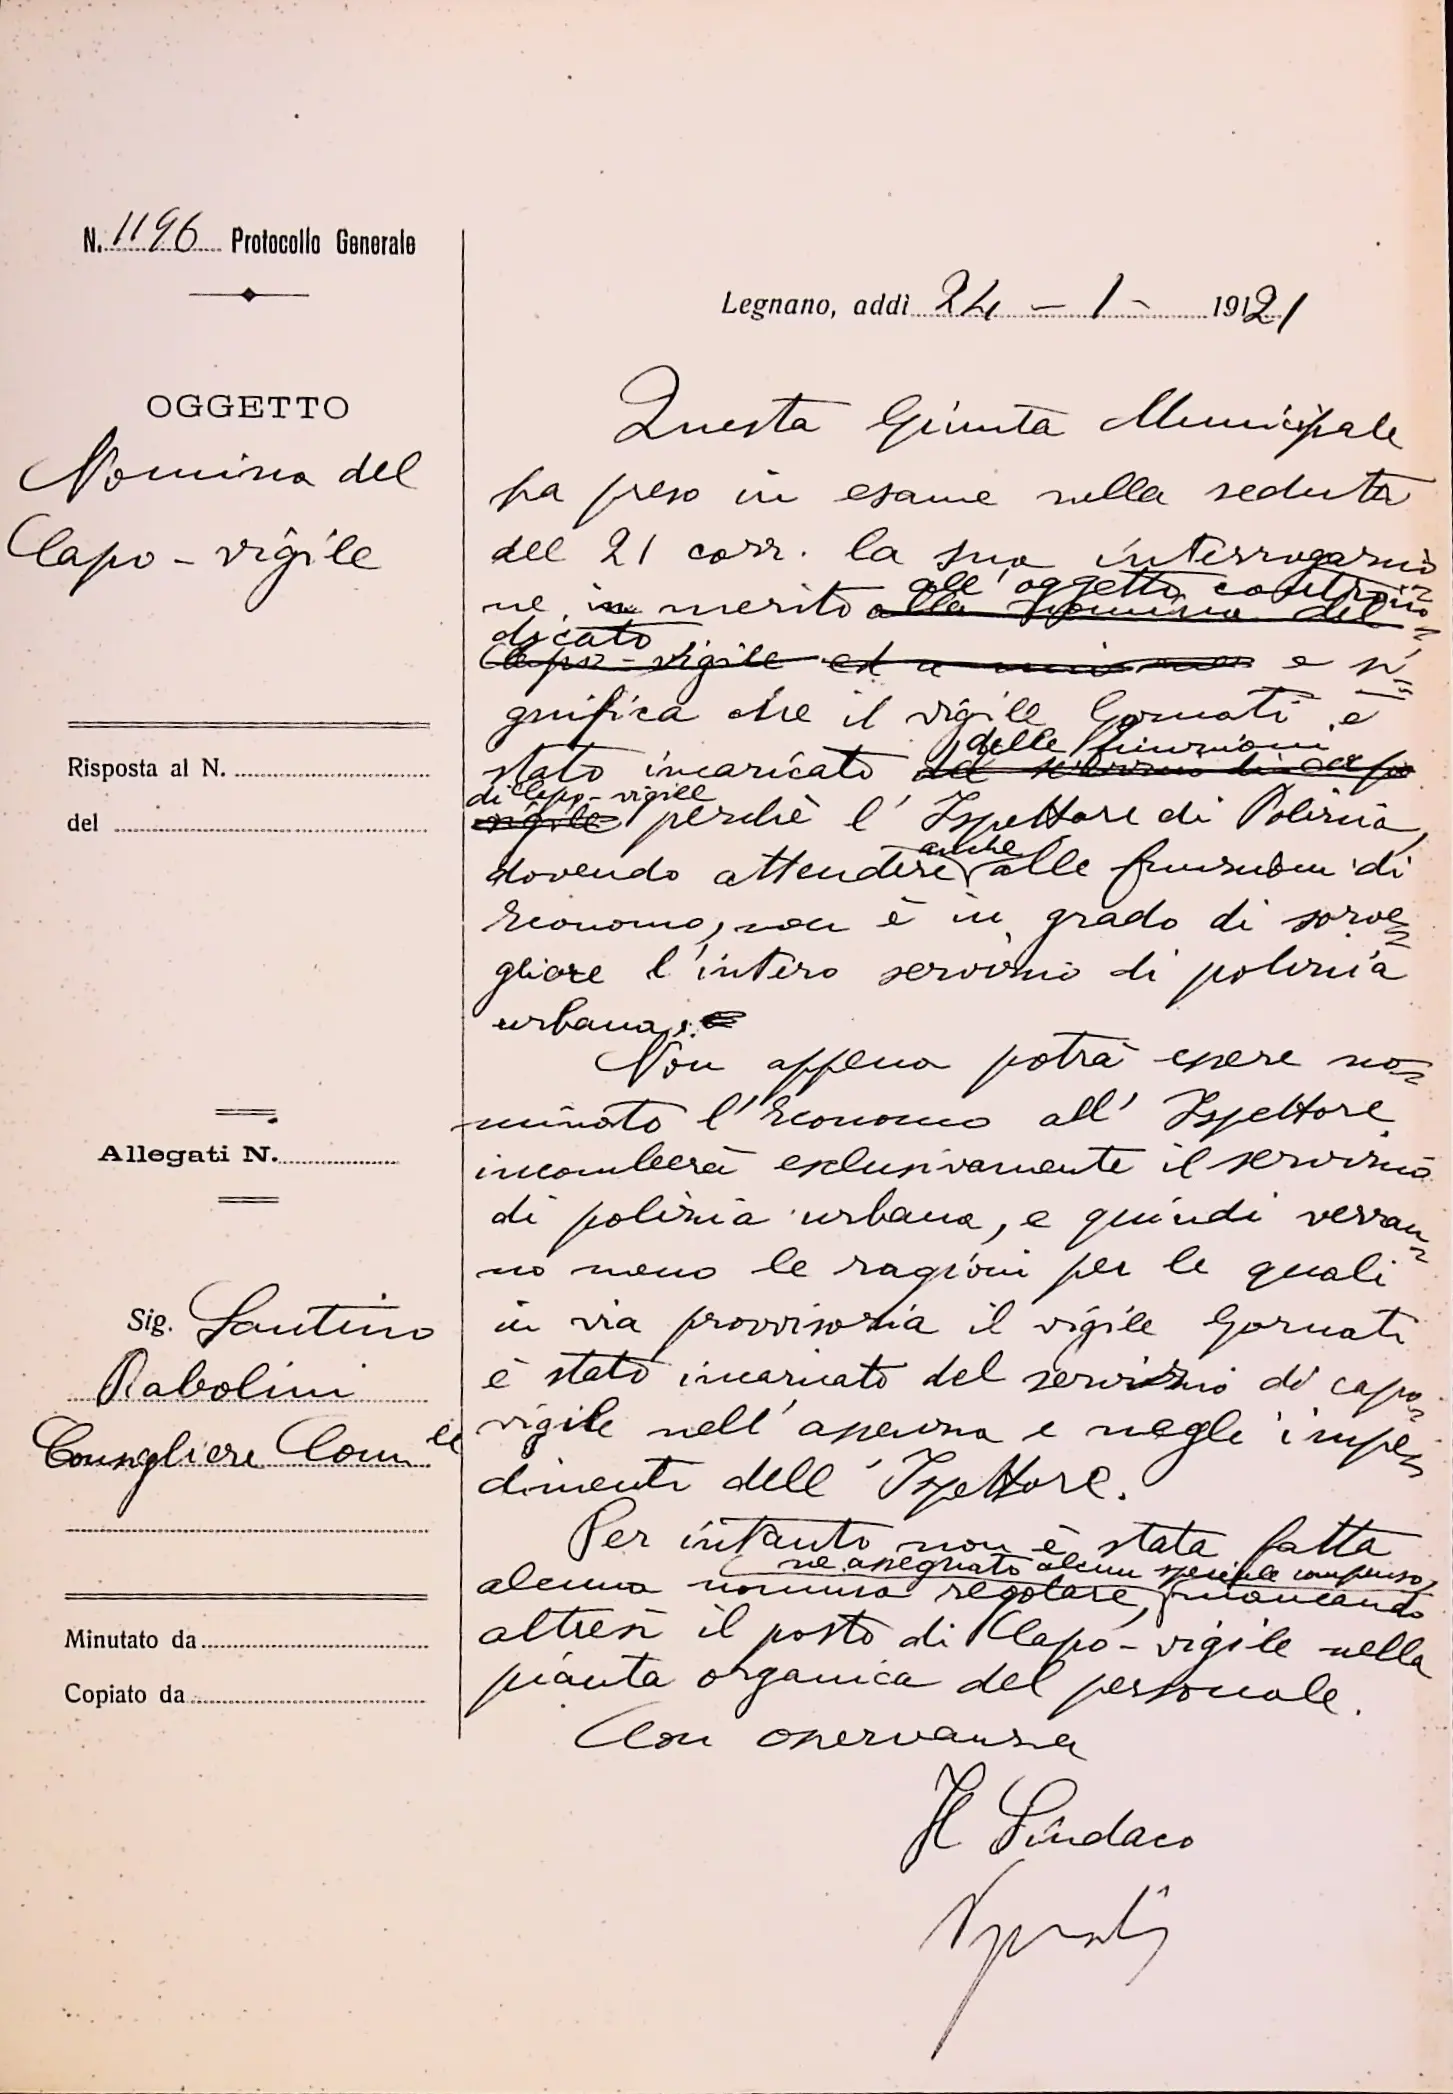 N. 1196 Protocollo Generale
OGGETTO
Nomina del
Capo-vigile
Risposta al N.
del
Allegati N.
Sig. Santino
Rabolini
Consigliere Com.le
Minutato da
Copiato da
Legnano, addì 24 - 1 - 19121
Questa Giunta Municipale
ha preso in esame nella seduta
del 21 corr. la sua interrogazio=
all'oggetto controin=
ne in merito alla nomina del
dicato
Capo-vigile ed a e si=
gnifica che il vigile Gornati è
delle funzioni
stato incaricato del servizio di capo
di Capo-vigile
vigile perchè l'Ispettore di Polizia,
anche
dovendo attendere alle funzioni di
Economo, non è in grado di sorve=
gliare l'intero servizio di polizia
urbana.
Non appena potrà essere no=
minato l'Economo all'Ispettore
incomberà esclusivamente il servizio
di polizia urbana, e quindi verran=
no meno le ragioni per le quali
in via provvisoria il vigile Gornati
è stato incaricato del servizio di capo=
vigile nell'assenza e negli impe=
dimenti dell'Ispettore.
Per intanto non è stata fatta
ne assegnato alcun speciale compenso,
alcuna nomina regolare, mancando
altresì il posto di Capo-vigile nella
pianta organica del personale.
Con osservanza
Il Sindaco